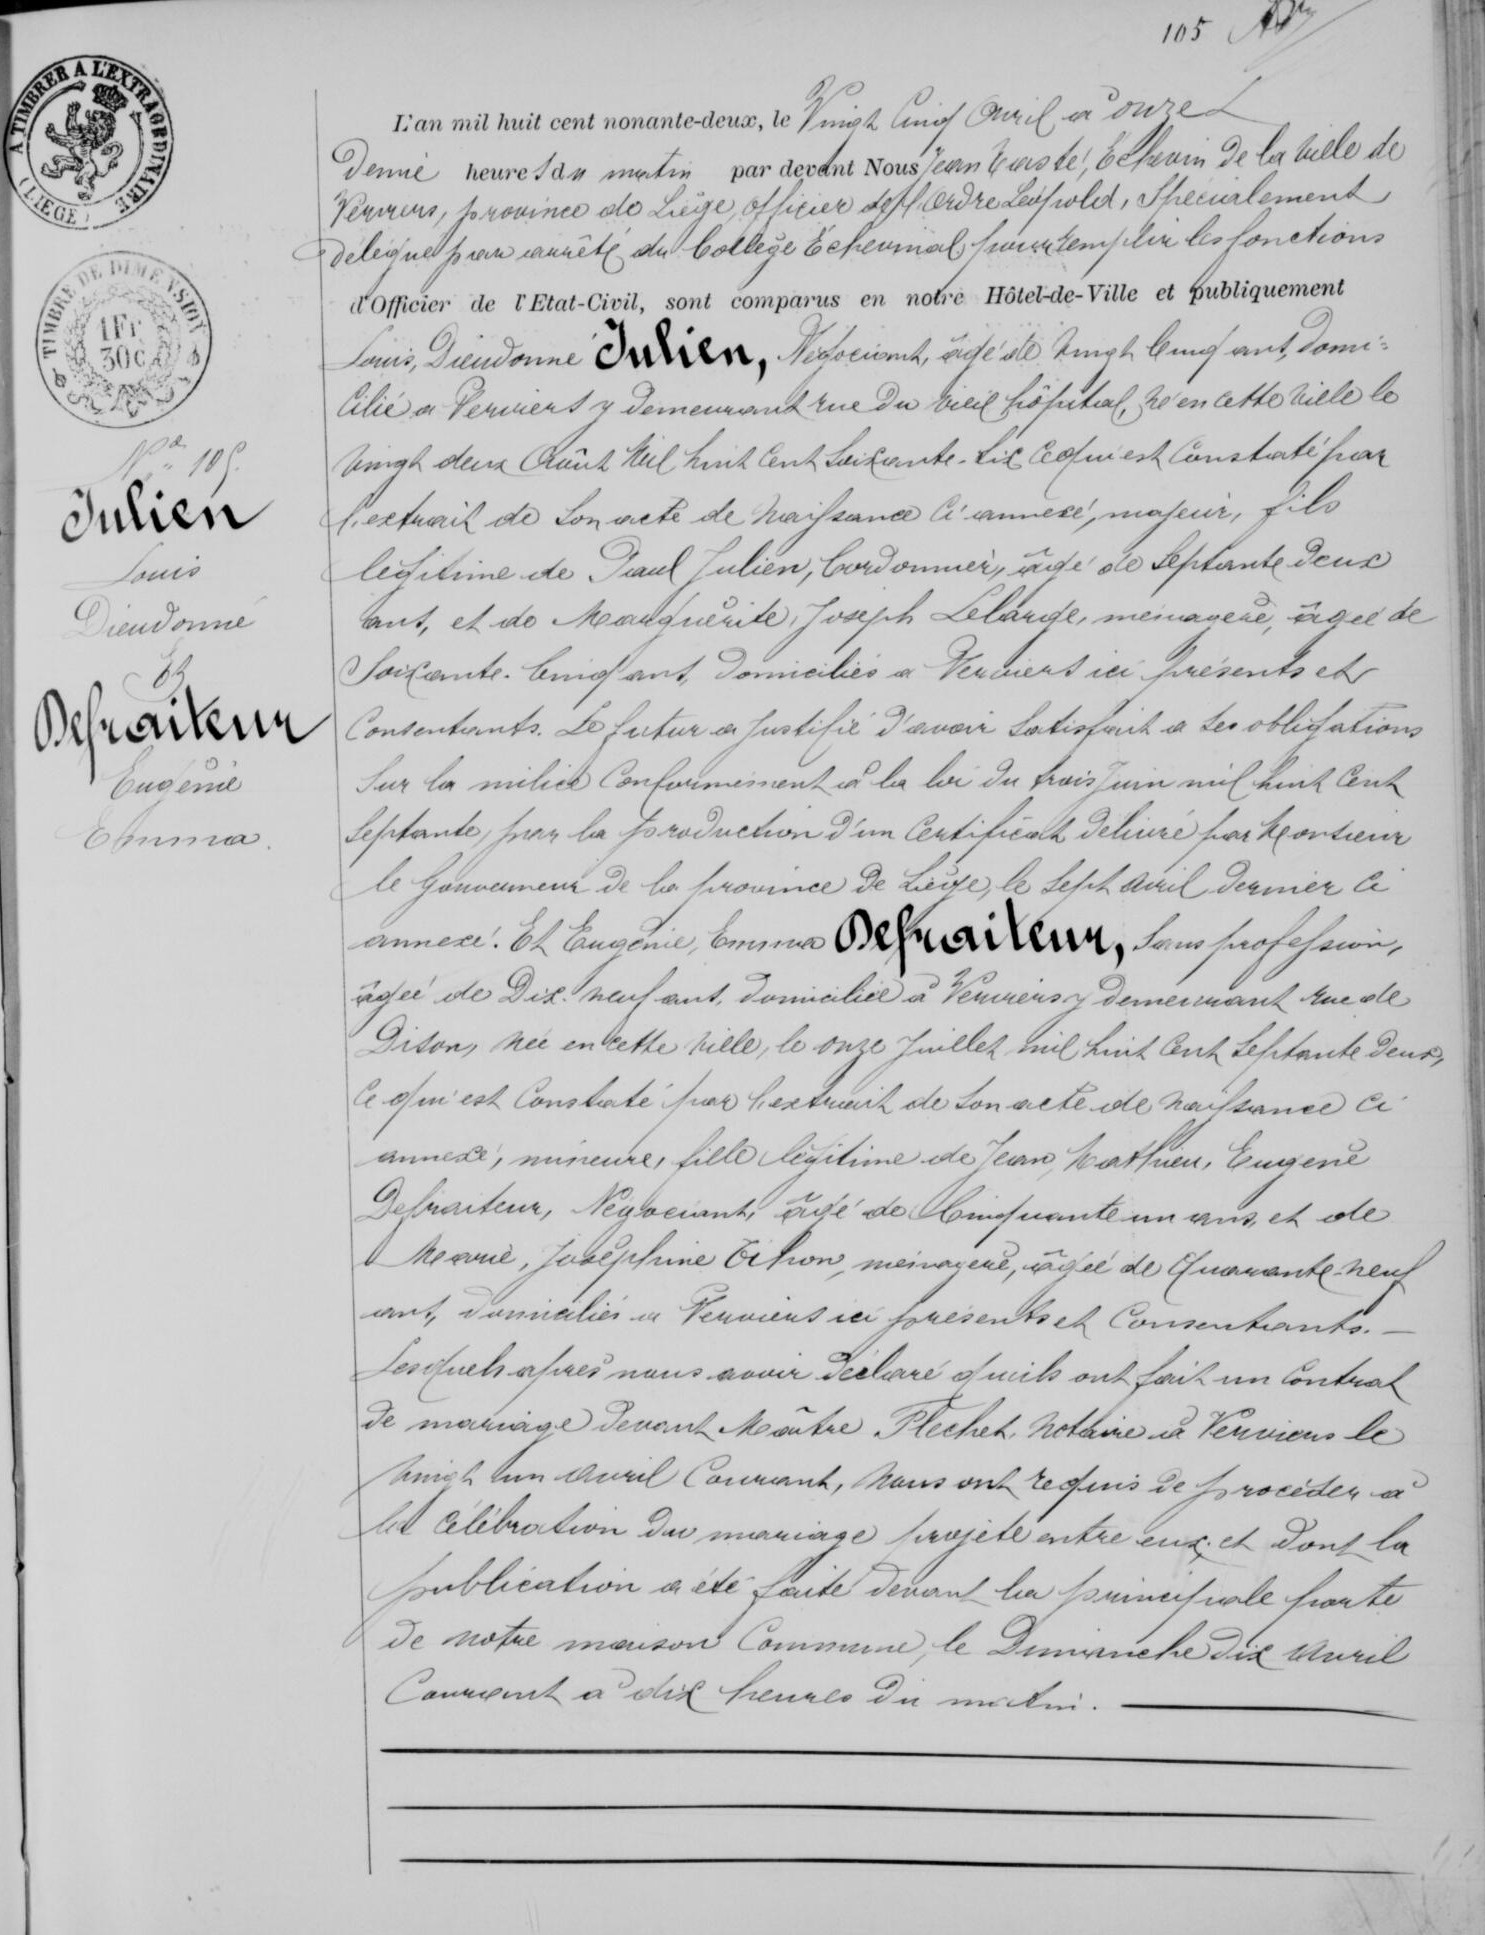 105
A TIMBRER A L'EXTRAORDINAIRE
(LIEGE)
TIMBRE DE DIMENSION
1Fr
30c
No 105.
Julien
Louis
Dieudonné
Et
Defraiteur
Eugénie
Emma.
L'an mil huit cent nonante-deux, le Vingt Cinq Avril à onze
Demie heures du matin par devant Nous Jean Echevin de la Ville de
Verviers, province de Liège, officier de l'Ordre Léopold, Spécialement
délégué par arrêté du Collège Echevinal pour remplir les fonctions
d'Officier de l'Etat-Civil, sont comparus en notre Hôtel-de-Ville et publiquement
Louis, Dieudonné Julien, Négociant, âgé de Vingt Cinq ans, Domi-
cilié a Verviers y demeurant rue du vieil hôpital, né en cette Ville le
Vingt deux Août Mil huit Cent Soixante-Six Ce qui est Constaté par
l'extrait de Son acte de Naissance Ci annexé, majeur, fils
légitime de Paul Julien, Cordonnier, âgé de Septante Deux
ans, et de Marguerite, Joseph Lelarge, ménagère, âgée de
Soixante-Cinq ans, Domiciliés a Verviers ici présents et
Consentants. Le futur a Justifié d'avoir Satisfait a Ses obligations
Sur la milice Conformément à la loi du trois Juin mil huit Cent
Septante, par la production d'un Certificat délivré par Monsieur
le Gouverneur de la province de Liège, le Sept Avril dernier Ci
annexé. Et Eugénie, Emma Defraiteur, Sans profession,
âgée de Dix-neuf ans, domiciliée à Verviers y demeurant rue de
Dison, née en cette Ville, le onze Juillet mil huit Cent Septante Deux,
Ce qui est Constaté par l'extrait de Son acte de Naissance Ci
annexé, mineure, fille légitime de Jean, Mathieu, Eugène
Defraiteur, Négociant, âgé de Cinquante un ans, et de
Marie, Joséphine Tihon, ménagère, âgée de Quarante-neuf
ans, domiciliés a Verviers ici présents et Consentants. —
Lesquels après nous avoir déclaré qu'ils ont fait un Contrat
de mariage devant Maître Flechet, Notaire à Verviers le
Vingt un Avril Courant, Nous ont requis de procéder à
la Célébration du mariage projeté entre eux, et dont la
publication a été faite devant la principale porte
de notre maison Commune, le Dimanche dix Avril
Courant à dix heures du matin.